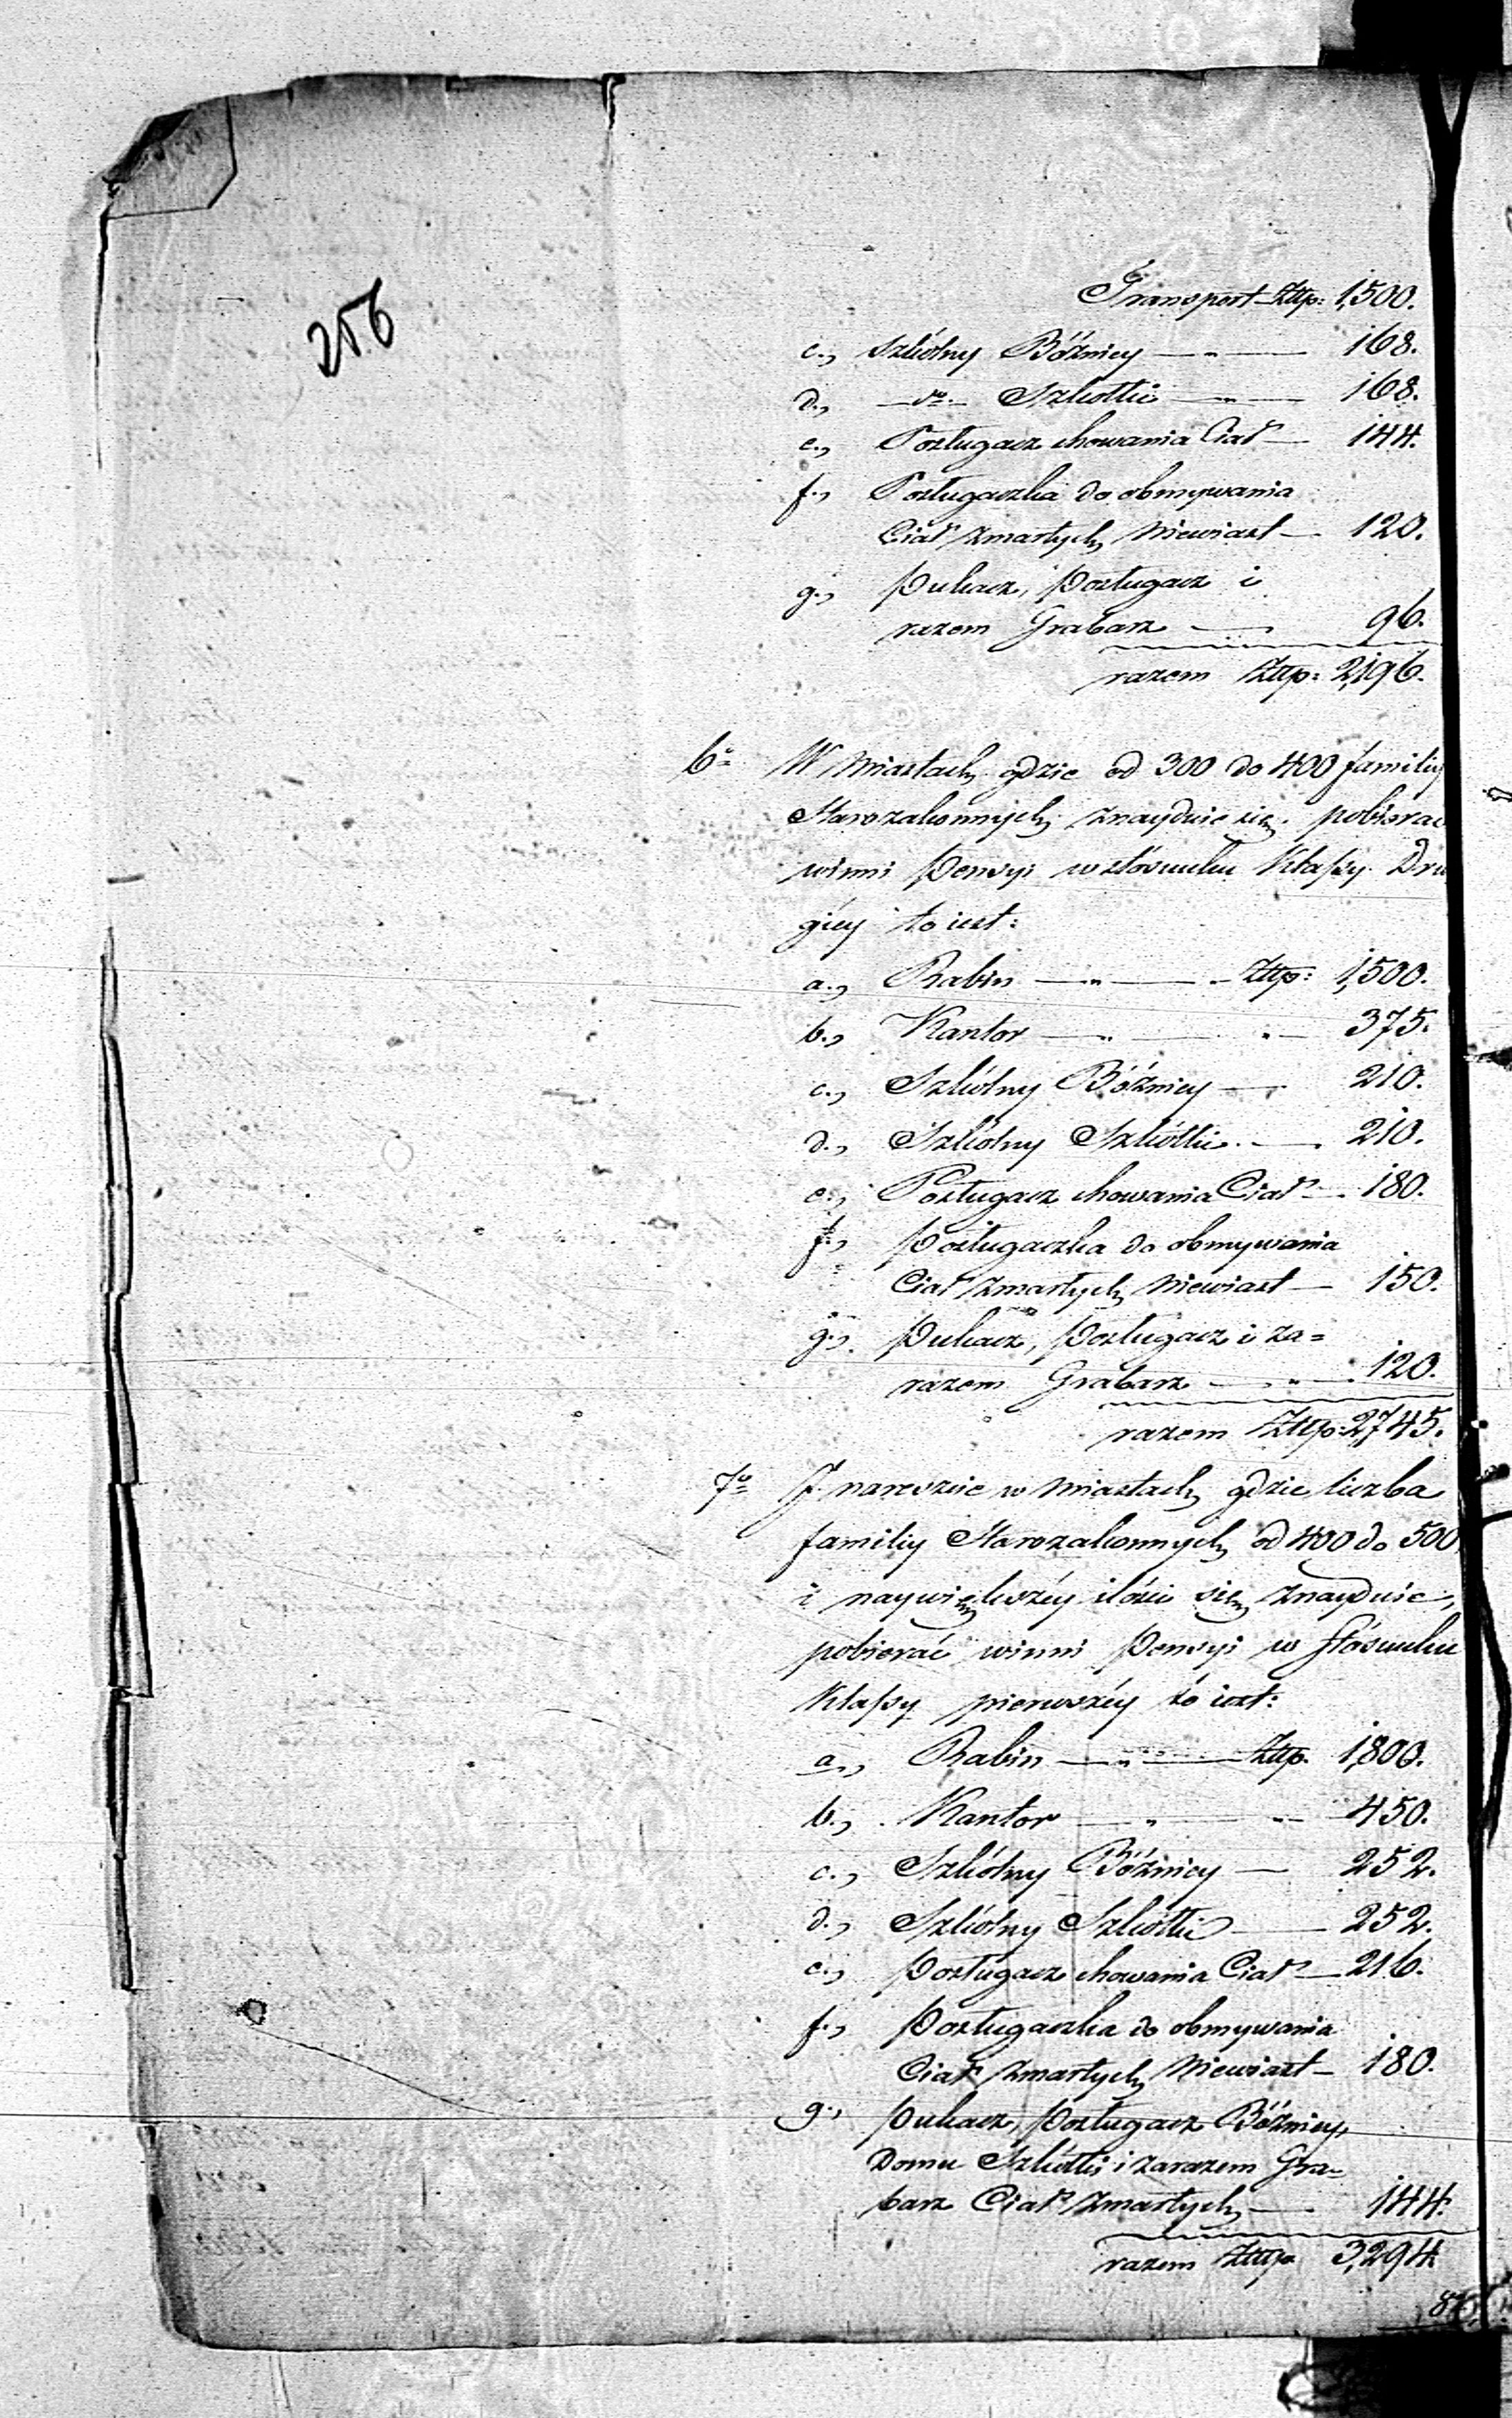 256
Transport Złłp: 1,500.
c., Szkólny Bóżnicy —„— 168.
d., —do— Szkółki —„— 168.
e., Posługacz chowania Ciał — 144.
f., Posługaczka do obmywania
Ciał zmarłych Niewiast — 120.
g., Pukacz, Posługacz i
razem Grabarz — 96.
razem Złłp: 2,196.
6o W Miastach gdzie od 300 do 400 familiy
Starozakonnych znayduie się pobierac
winni Pensyi w stósunku Klassy Dru
giéy to iest:
a., Rabin —„— Złłp: 1,500.
b., Kantor —„— „— 375.
c., Szkólny Bóżnicy — 210.
d., Szkólny Szkółki — 210.
e., Posługacz chowania Ciał — 180.
f., Posługaczka do obmywania
Ciał zmarłych Niewiast — 150.
g., Pukacz, Posługacz i za=
razem Grabarz —„— 120.
razem Złłp: 2,745.
7o I nareszcie w Miastach gdzie liczba
familiy Starozakonnych od 400 do 500
i naywiększéy ilości się znayduie,
pobierać winni Pensyi w stósunku
Klassy pierwszéy to iest:
a., Rabin —„— Złłp. 1,800.
b., Kantor —„— „— 450.
c., Szkólny Bóżnicy — 252.
d., Szkólny Szkółki — 252.
e., Posługacz chowania Ciał — 216.
f., Posługaczka do obmywania
Ciał zmarłych Niewiast — 180.
g., Pukacz, Posługacz Bóżnicy,
Domu Szkółki i zarazem Gra=
barz Ciał zmarłych — 144.
razem Złłp 3,294.